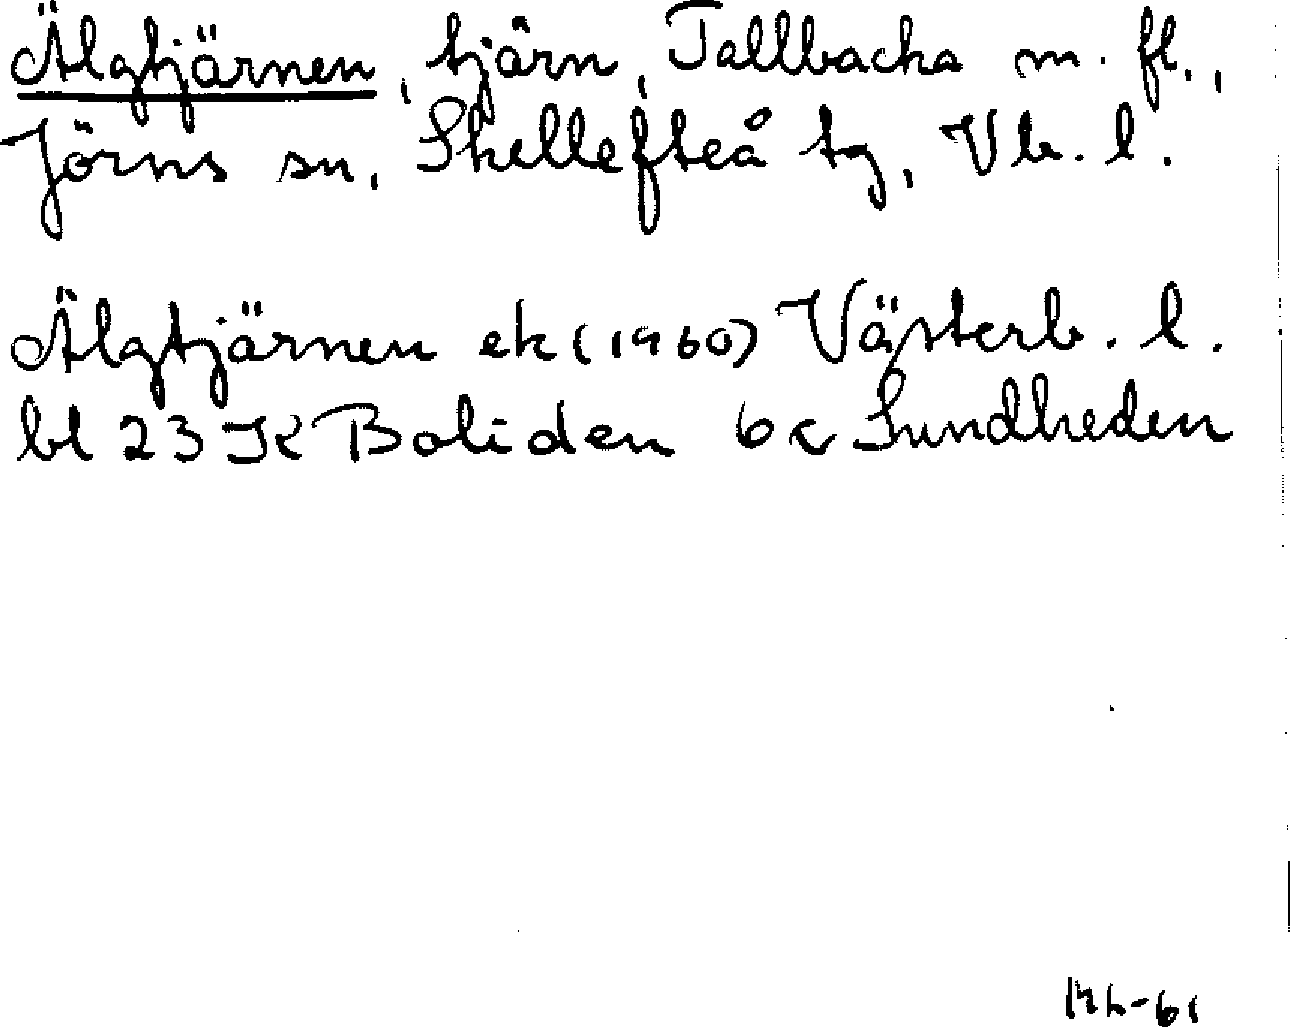 Älgtjärnen, tjärn, Tallbacka m. fl.,
Jörns sn, Skellefteå tg, Vb. l.
Älgtjärnen ek (1960) Västerb. l.
bl 23 K Boliden 6 c Sundheden